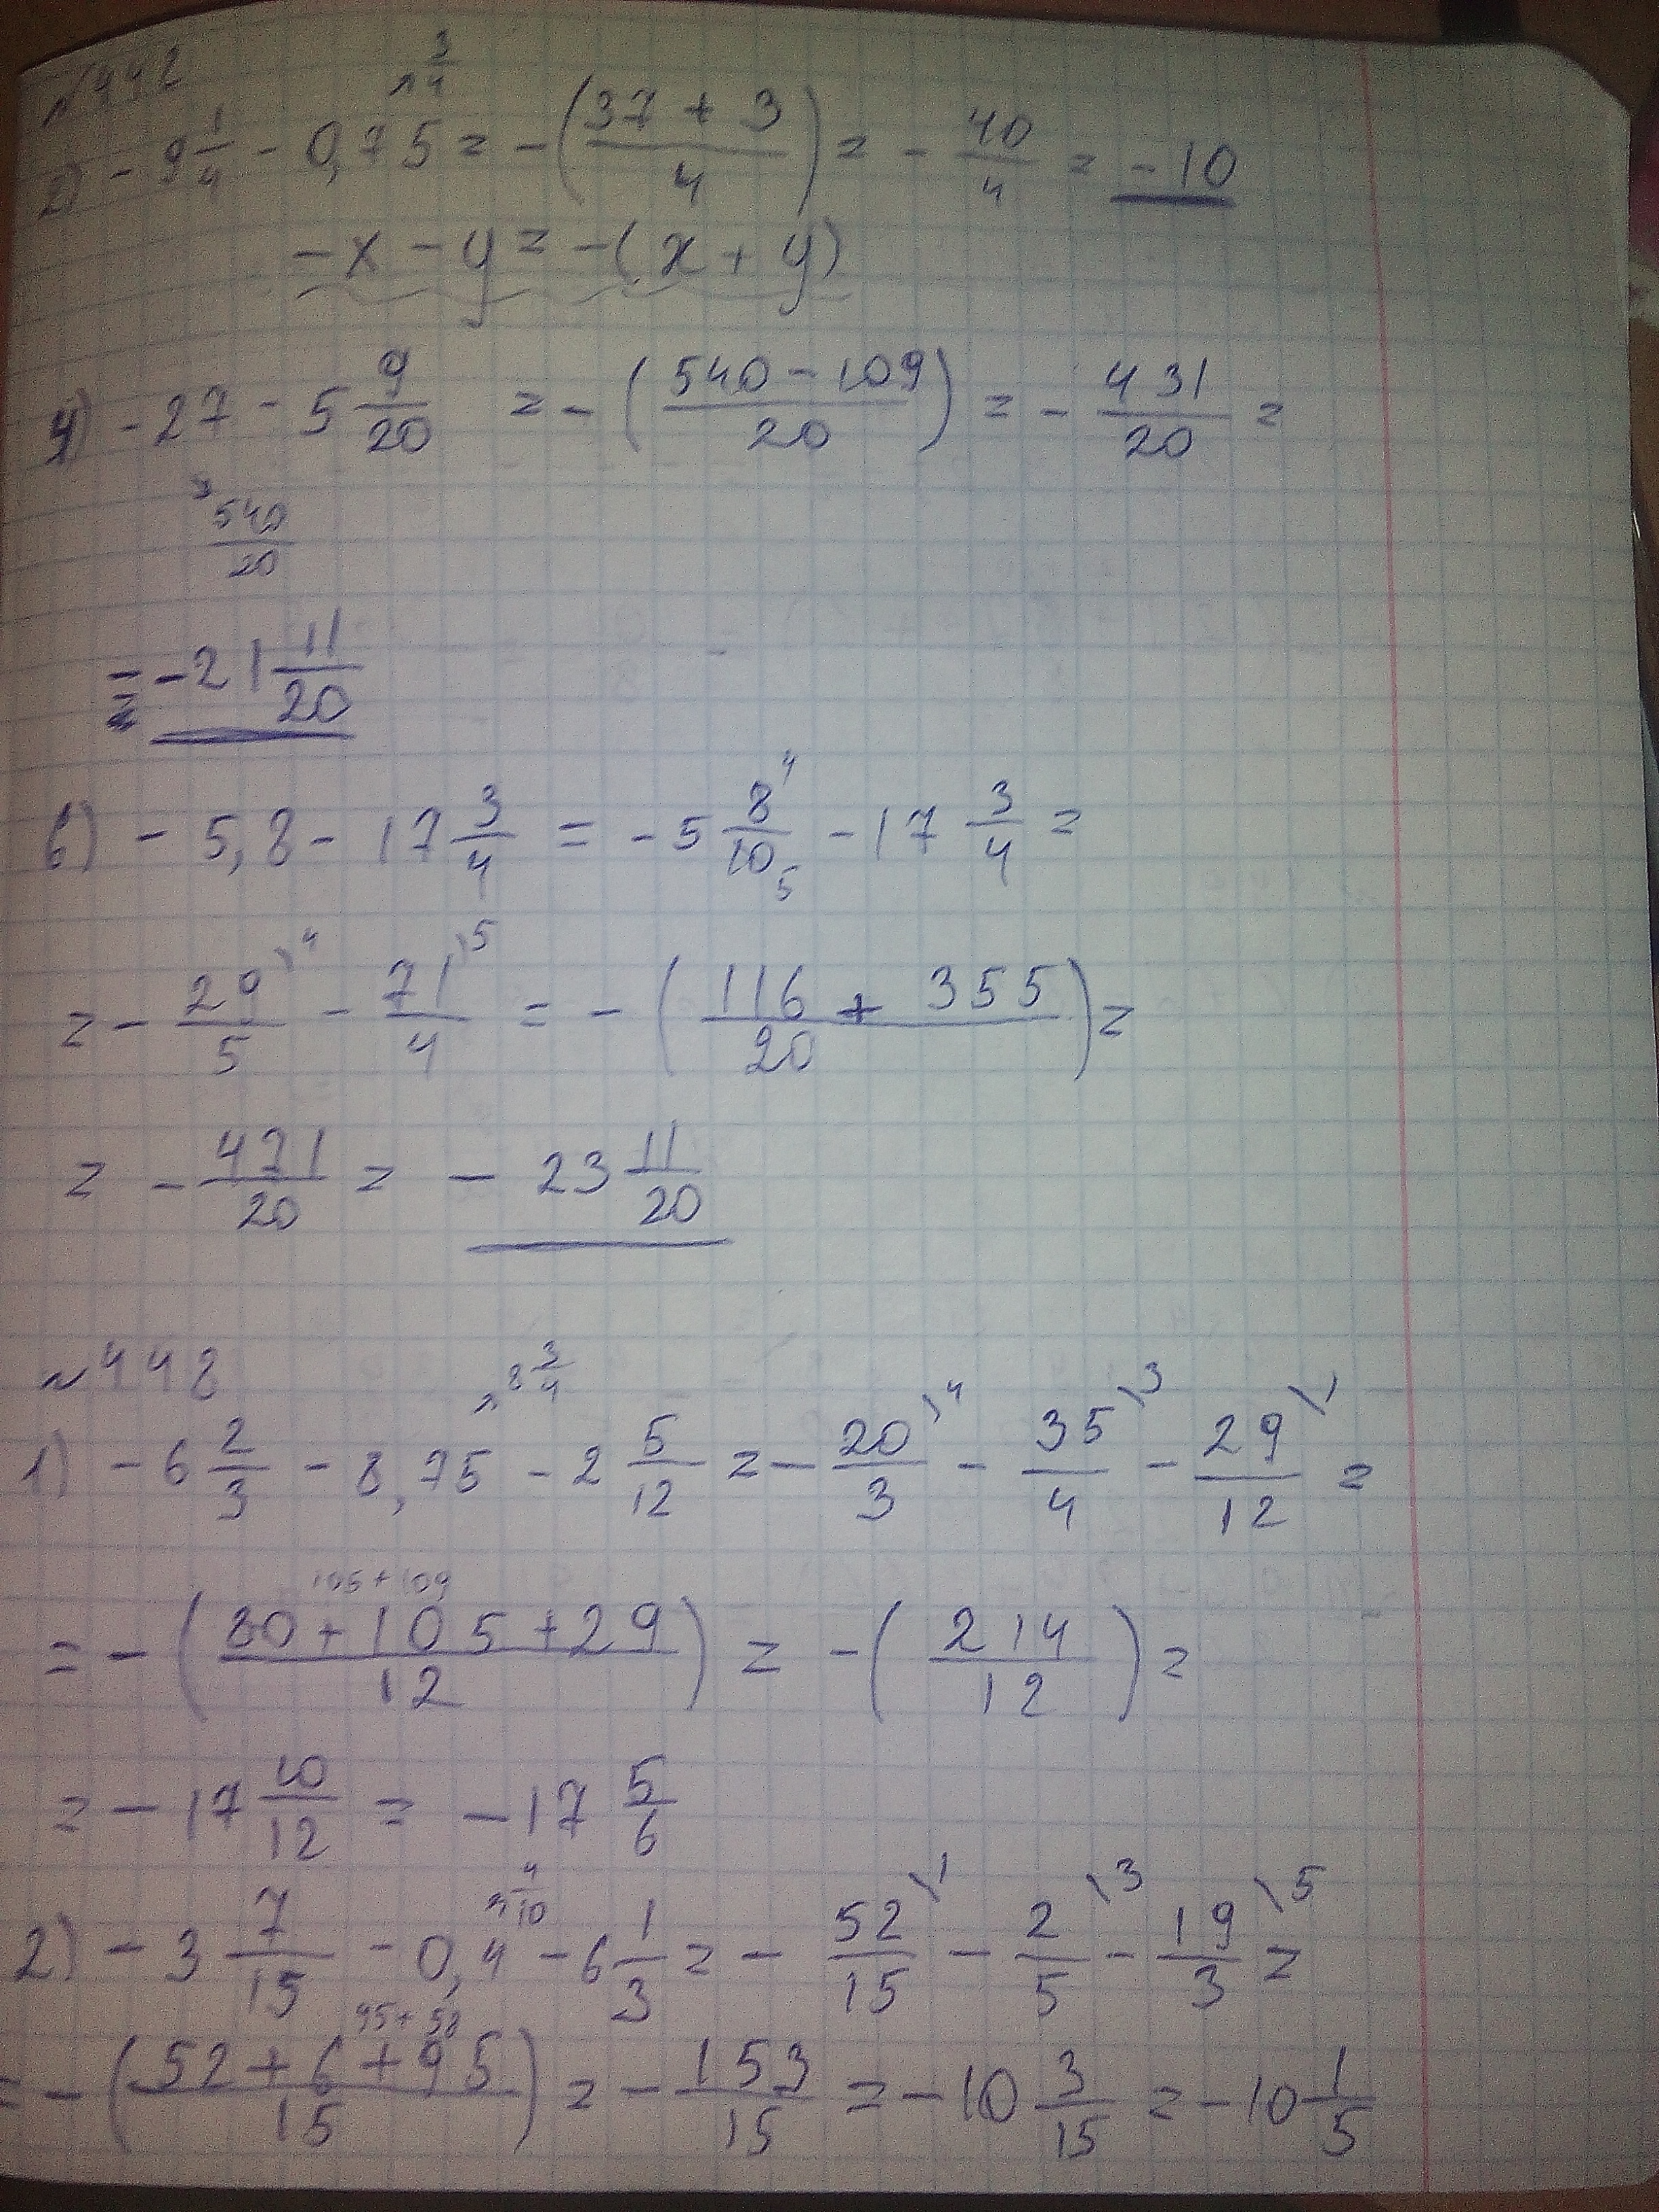 №442
2) - 9 1/4 - 0,75 = -((37 + 3)/4) = - 40/4 = -10
= 3/4
-x - y = -(x + y)
4) -27 - 5 9/20 = -((540 - 109)/20) = - 431/20 =
= 540/20
= -21 11/20
6) - 5,8 - 17 3/4 = -5 8/10 - 17 3/4 =
4
5
= - 29/5 \4 - 71/4 \5 = -((116 + 355)/20) =
= - 471/20 = - 23 11/20
№448
= 8 3/4
1) - 6 2/3 - 8,75 - 2 5/12 = - 20/3 \4 - 35/4 \3 - 29/12 \1 =
105 + 109
= -((80 + 105 + 29)/12) = -(214/12) =
= - 17 10/12 = - 17 5/6
= 4/10
2) - 3 7/15 - 0,4 - 6 1/3 = - 52/15 \1 - 2/5 \3 - 19/3 \5 =
95 + 58
= -((52 + 6 + 95)/15) = - 153/15 = - 10 3/15 = - 10 1/5